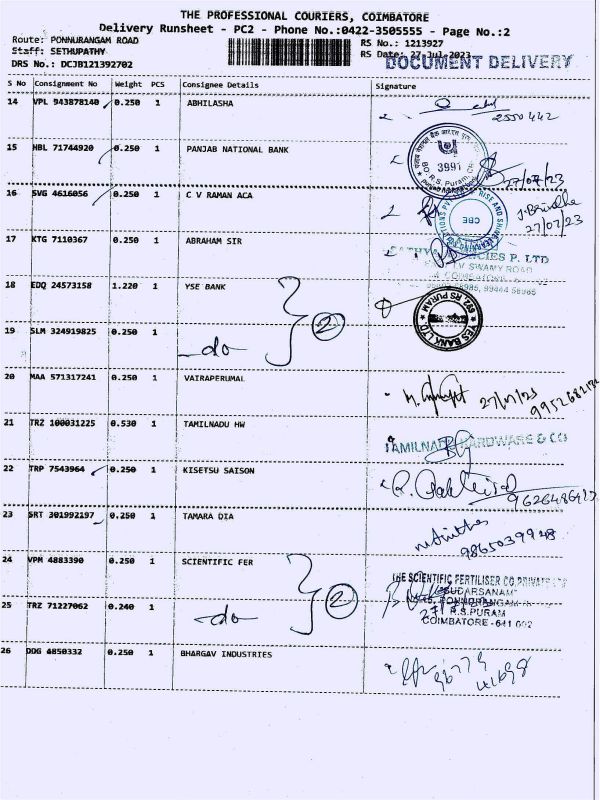 THE PROFESSIONAL COURIERS, COIMBATORE
Delivery Runsheet - PC2 - Phone No.:0422-3505555 - Page No.:2
Route: PONNURANGAM ROAD
RS No.: 1213927
Staff: SETHUPATHY
RS Date: 27-Jul-2023
DRS No.: DCJB121392702
DOCUMENT DELIVERY
S No Consignment No Weight PCS Consignee Details Signature
14 VPL 943878140 0.250 1 ABHILASHA
2550442
15 HBL 71744920 0.250 1 PANJAB NATIONAL BANK
3991
BO R.S. Puram
27/07/23
16 SVG 4616056 0.250 1 C V RAMAN ACA
RISE AND SHINE
CBE
27/07/23
17 KTG 7110367 0.250 1 ABRAHAM SIR
CIES P. LTD
SWAMY ROAD
18 EDQ 24573158 1.220 1 YSE BANK
2
YES BANK LTD
692, RS PURAM
19 SLM 324919825 0.250 1
-do-
20 MAA 571317241 0.250 1 VAIRAPERUMAL
21 TRZ 100031225 0.530 1 TAMILNADU HW
TAMILNADU HARDWARE & CO
22 TRP 7543964 0.250 1 KISETSU SAISON
23 SRT 301992197 0.250 1 TAMARA DIA
9865039948
24 VPM 4883390 0.250 1 SCIENTIFIC FER
2
THE SCIENTIFIC FERTILISER CO.PRIVATE LTD
"SUDARSANAM"
25 TRZ 71227062 0.240 1
-do-
R.S.PURAM
COIMBATORE - 641 002
26 DDG 4850332 0.250 1 BHARGAV INDUSTRIES